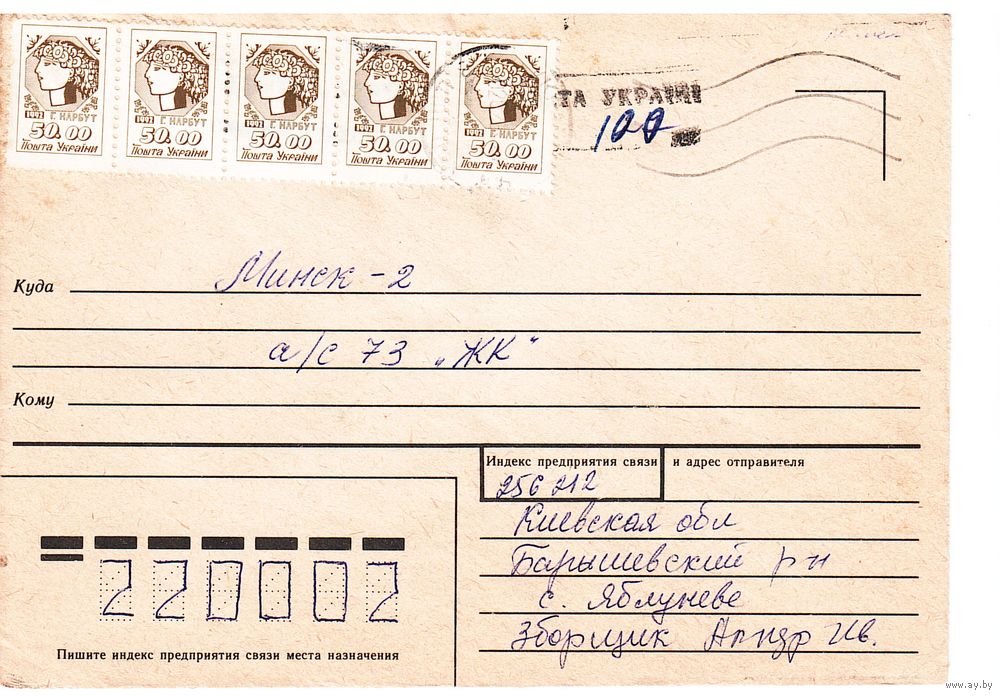 50.00 50.00 50.00 50.00 50.00
1992 Г. НАРБУТ 1992 Г. НАРБУТ 1992 Г. НАРБУТ 1992 Г. НАРБУТ 1992 Г. НАРБУТ
Пошта України Пошта України Пошта України Пошта України Пошта України
ТА УКРАЇНИ
100
Куда Минск-2
а/с 73 „ЖК"
Кому
Индекс предприятия связи и адрес отправителя
256212
Киевская обл
Барышевский р-н
с. Яблуневе
Зборщик Ал-ндр Ив.
220002
Пишите индекс предприятия связи места назначения
www.ay.by